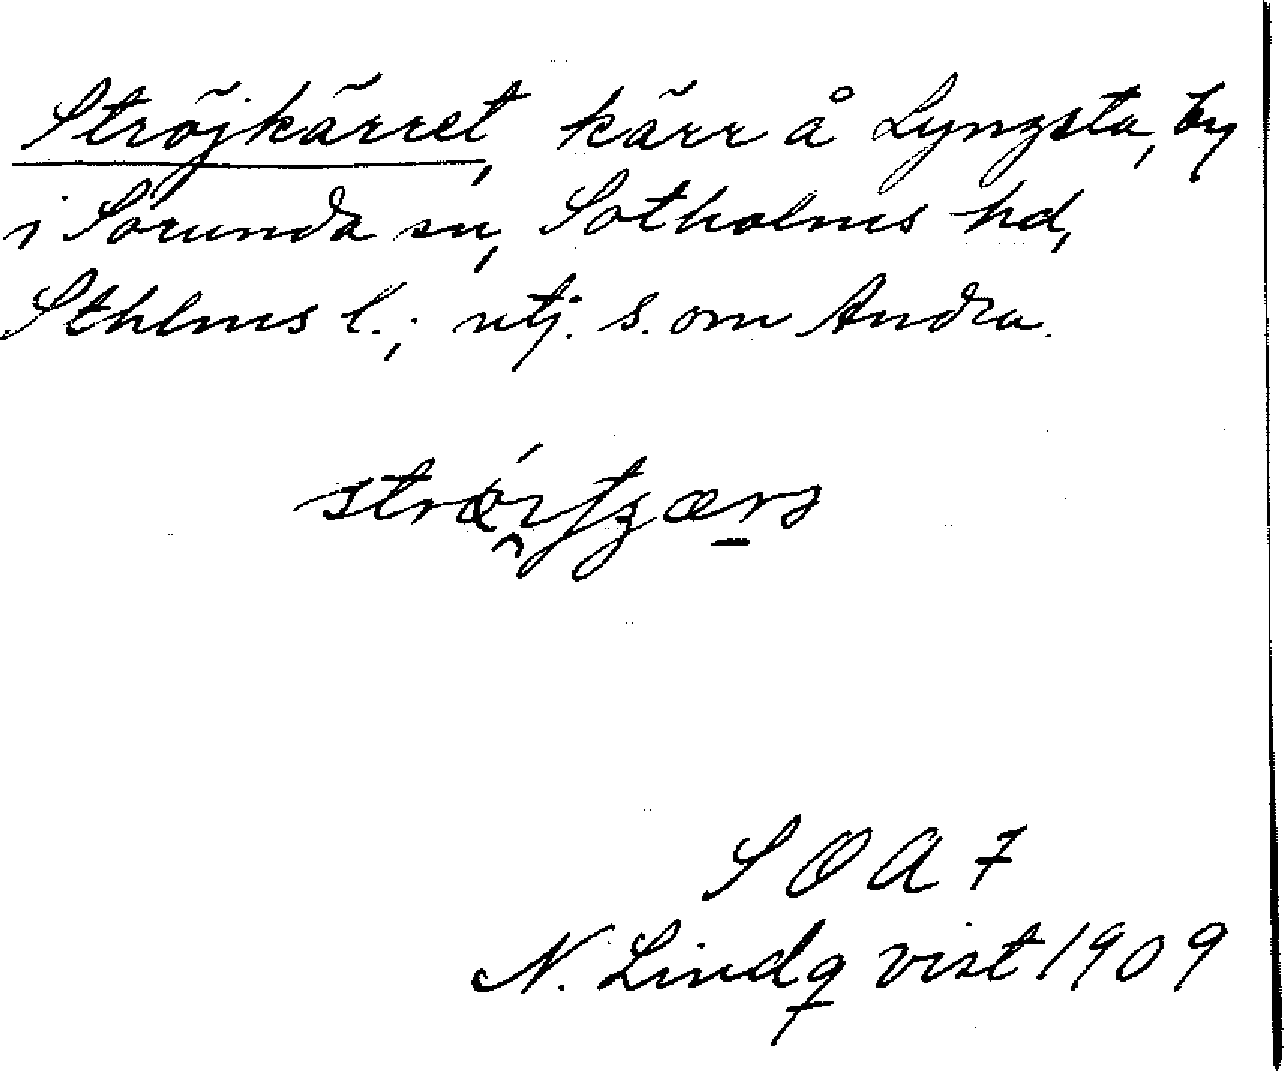 Ströjkärret, kärr å Lyngsta, by
i Sorunda sn, Sotholms hd,
Sthlms l.; utj. s. om Andra.
SOA 7
N. Lindqvist 1909